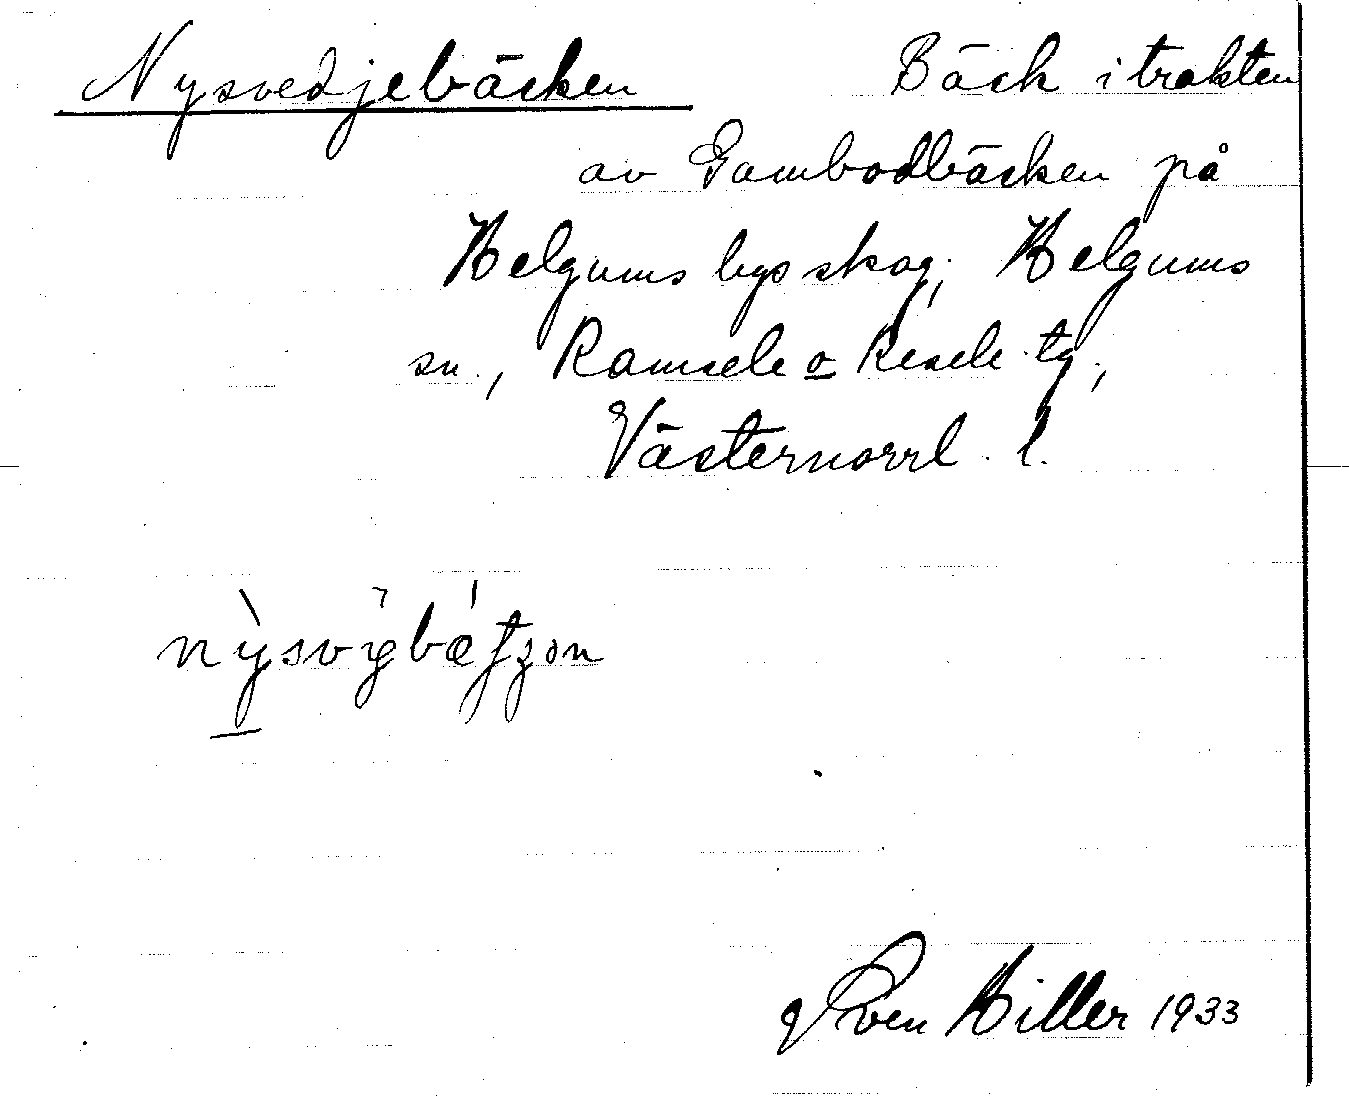 Nysvedjebäcken Bäck i trakten
av Gambodbäcken på
Helgums bys skog, Helgums
sn., Ramsele o Resele tg,
Västernorrl. l.
Sven Hiller 1933